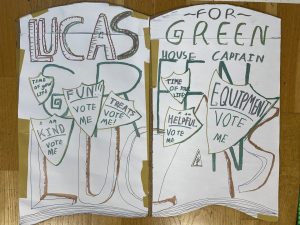 LUCAS
TIME OF
YOUR
LIFE!
FUN!!!
VOTE
ME
TREATS
VOTE
ME!
I am
KIND
VOTE
ME
~FOR~
GREEN
HOUSE CAPTAIN
TIME
OF YOUR
LIFE!
I am
HELPFUL
VOTE
ME
EQUIPMENT
VOTE
ME